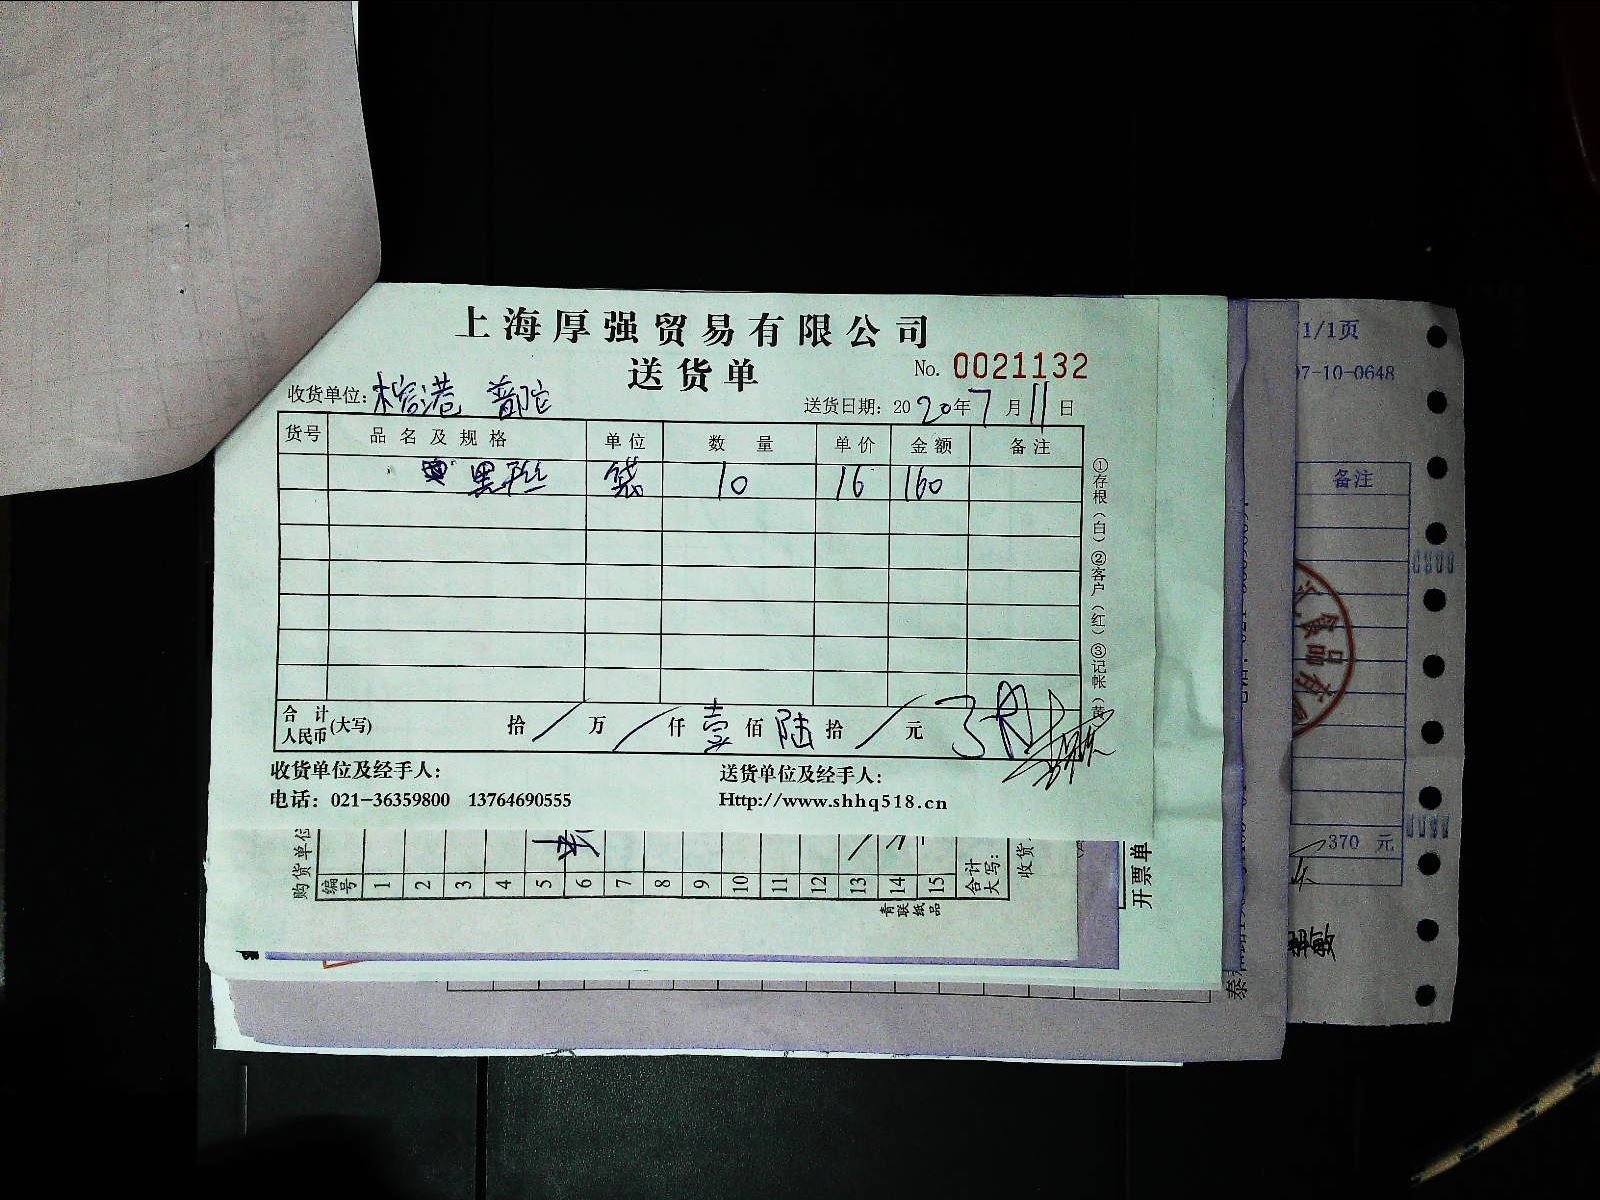 上海厚强贸易有限公司
送货单
No. 0021132
收货单位: 榕港 普陀
送货日期: 2020年7月11日
货号 品名及规格 单位 数量 单价 金额 备注
黑 袋 10 16 160
①存根(白)②客户(红)③记帐(黄)
合计人民币(大写) 拾/万/仟壹佰陆拾/元
收货单位及经手人:
送货单位及经手人:
电话: 021-36359800 13764690555
Http://www.shhq518.cn
购货单位
编号 1 2 3 4 5 6 7 8 9 10 11 12 13 14 15 合计大写:
收货
青联纸品
开票单
1/1页
07-10-0648
备注
食品有
370 元
敏
泰